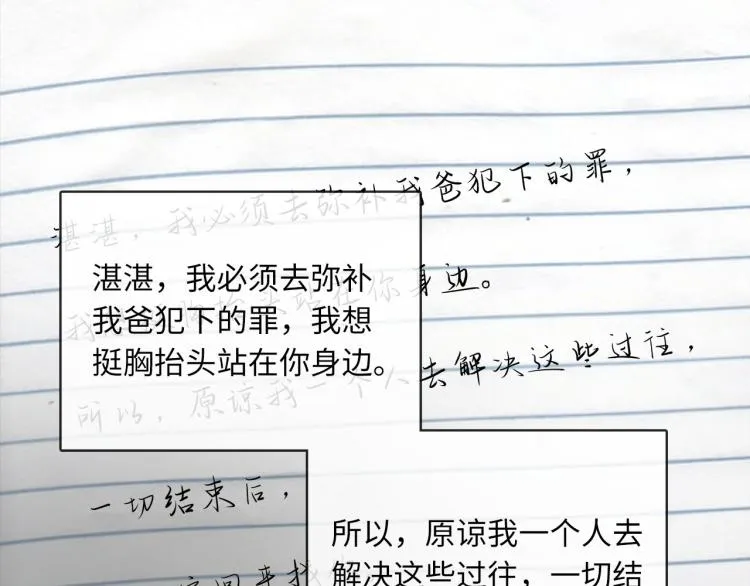 湛湛，我必须去弥补我爸犯下的罪，
我想挺胸抬头站在你身边。
所以，原谅我一个人去解决这些过往，
一切结束后，
回来找
湛湛，我必须去弥补
我爸犯下的罪，我想
挺胸抬头站在你身边。
所以，原谅我一个人去
解决这些过往，一切结